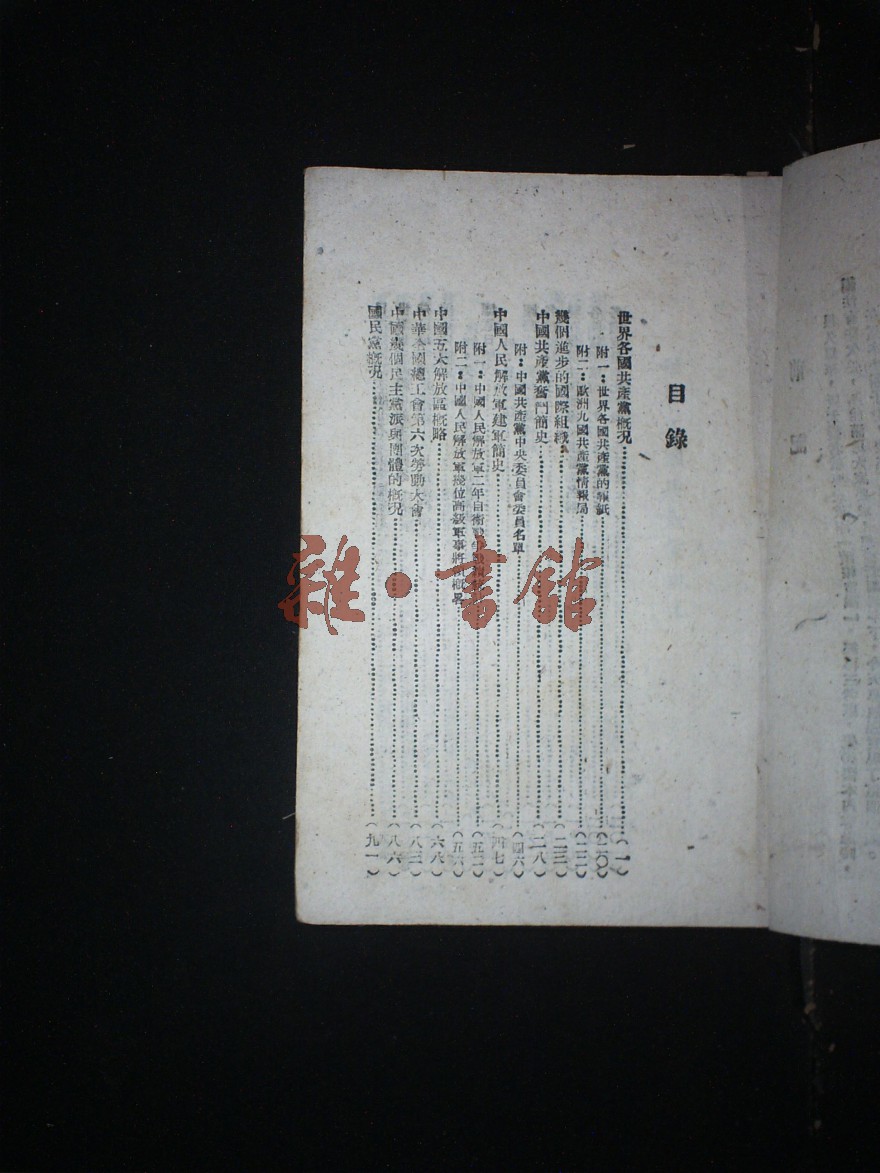 目錄
世界各國共產黨概況……(一)
附一：世界各國共產黨的報紙……(二〇)
附二：歐洲九國共產黨情報局……(二二)
幾個進步的國際組織……(二三)
中國共產黨奮鬥簡史……(二八)
附：中國共產黨中央委員會委員名單……(四六)
中國人民解放軍建軍簡史……(四七)
附一：中國人民解放軍二年自衛戰爭……(五二)
附二：中國人民解放軍幾位高級軍事將領概畧……(五六)
中國五大解放區概略……(六八)
中華全國總工會第六次勞動大會……(八三)
中國幾個民主黨派與團體的概況……(八六)
國民黨概況……(九一)
雜·書館